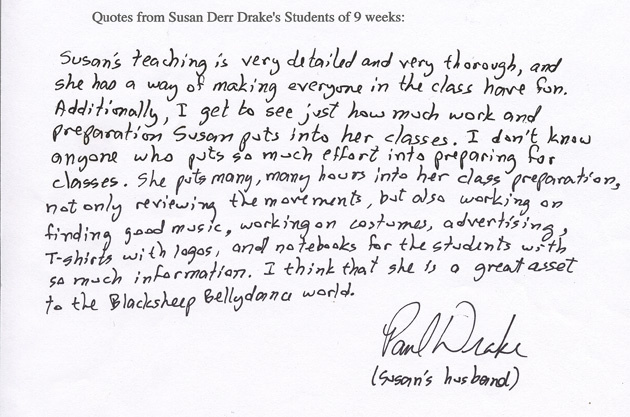 Quotes from Susan Derr Drake's Students of 9 weeks:
Susan's teaching is very detailed and very thorough, and
she has a way of making everyone in the class have fun.
Additionally, I get to see just how much work and
preparation Susan puts into her classes. I don't know
anyone who puts so much effort into preparing for
classes. She puts many, many hours into her class preparation,
not only reviewing the movements, but also working on
finding good music, working on costumes, advertising,
T-shirts with logos, and notebooks for the students with
so much information. I think that she is a great asset
to the Blacksheep Bellydance world.
Paul Drake
(Susan's husband)